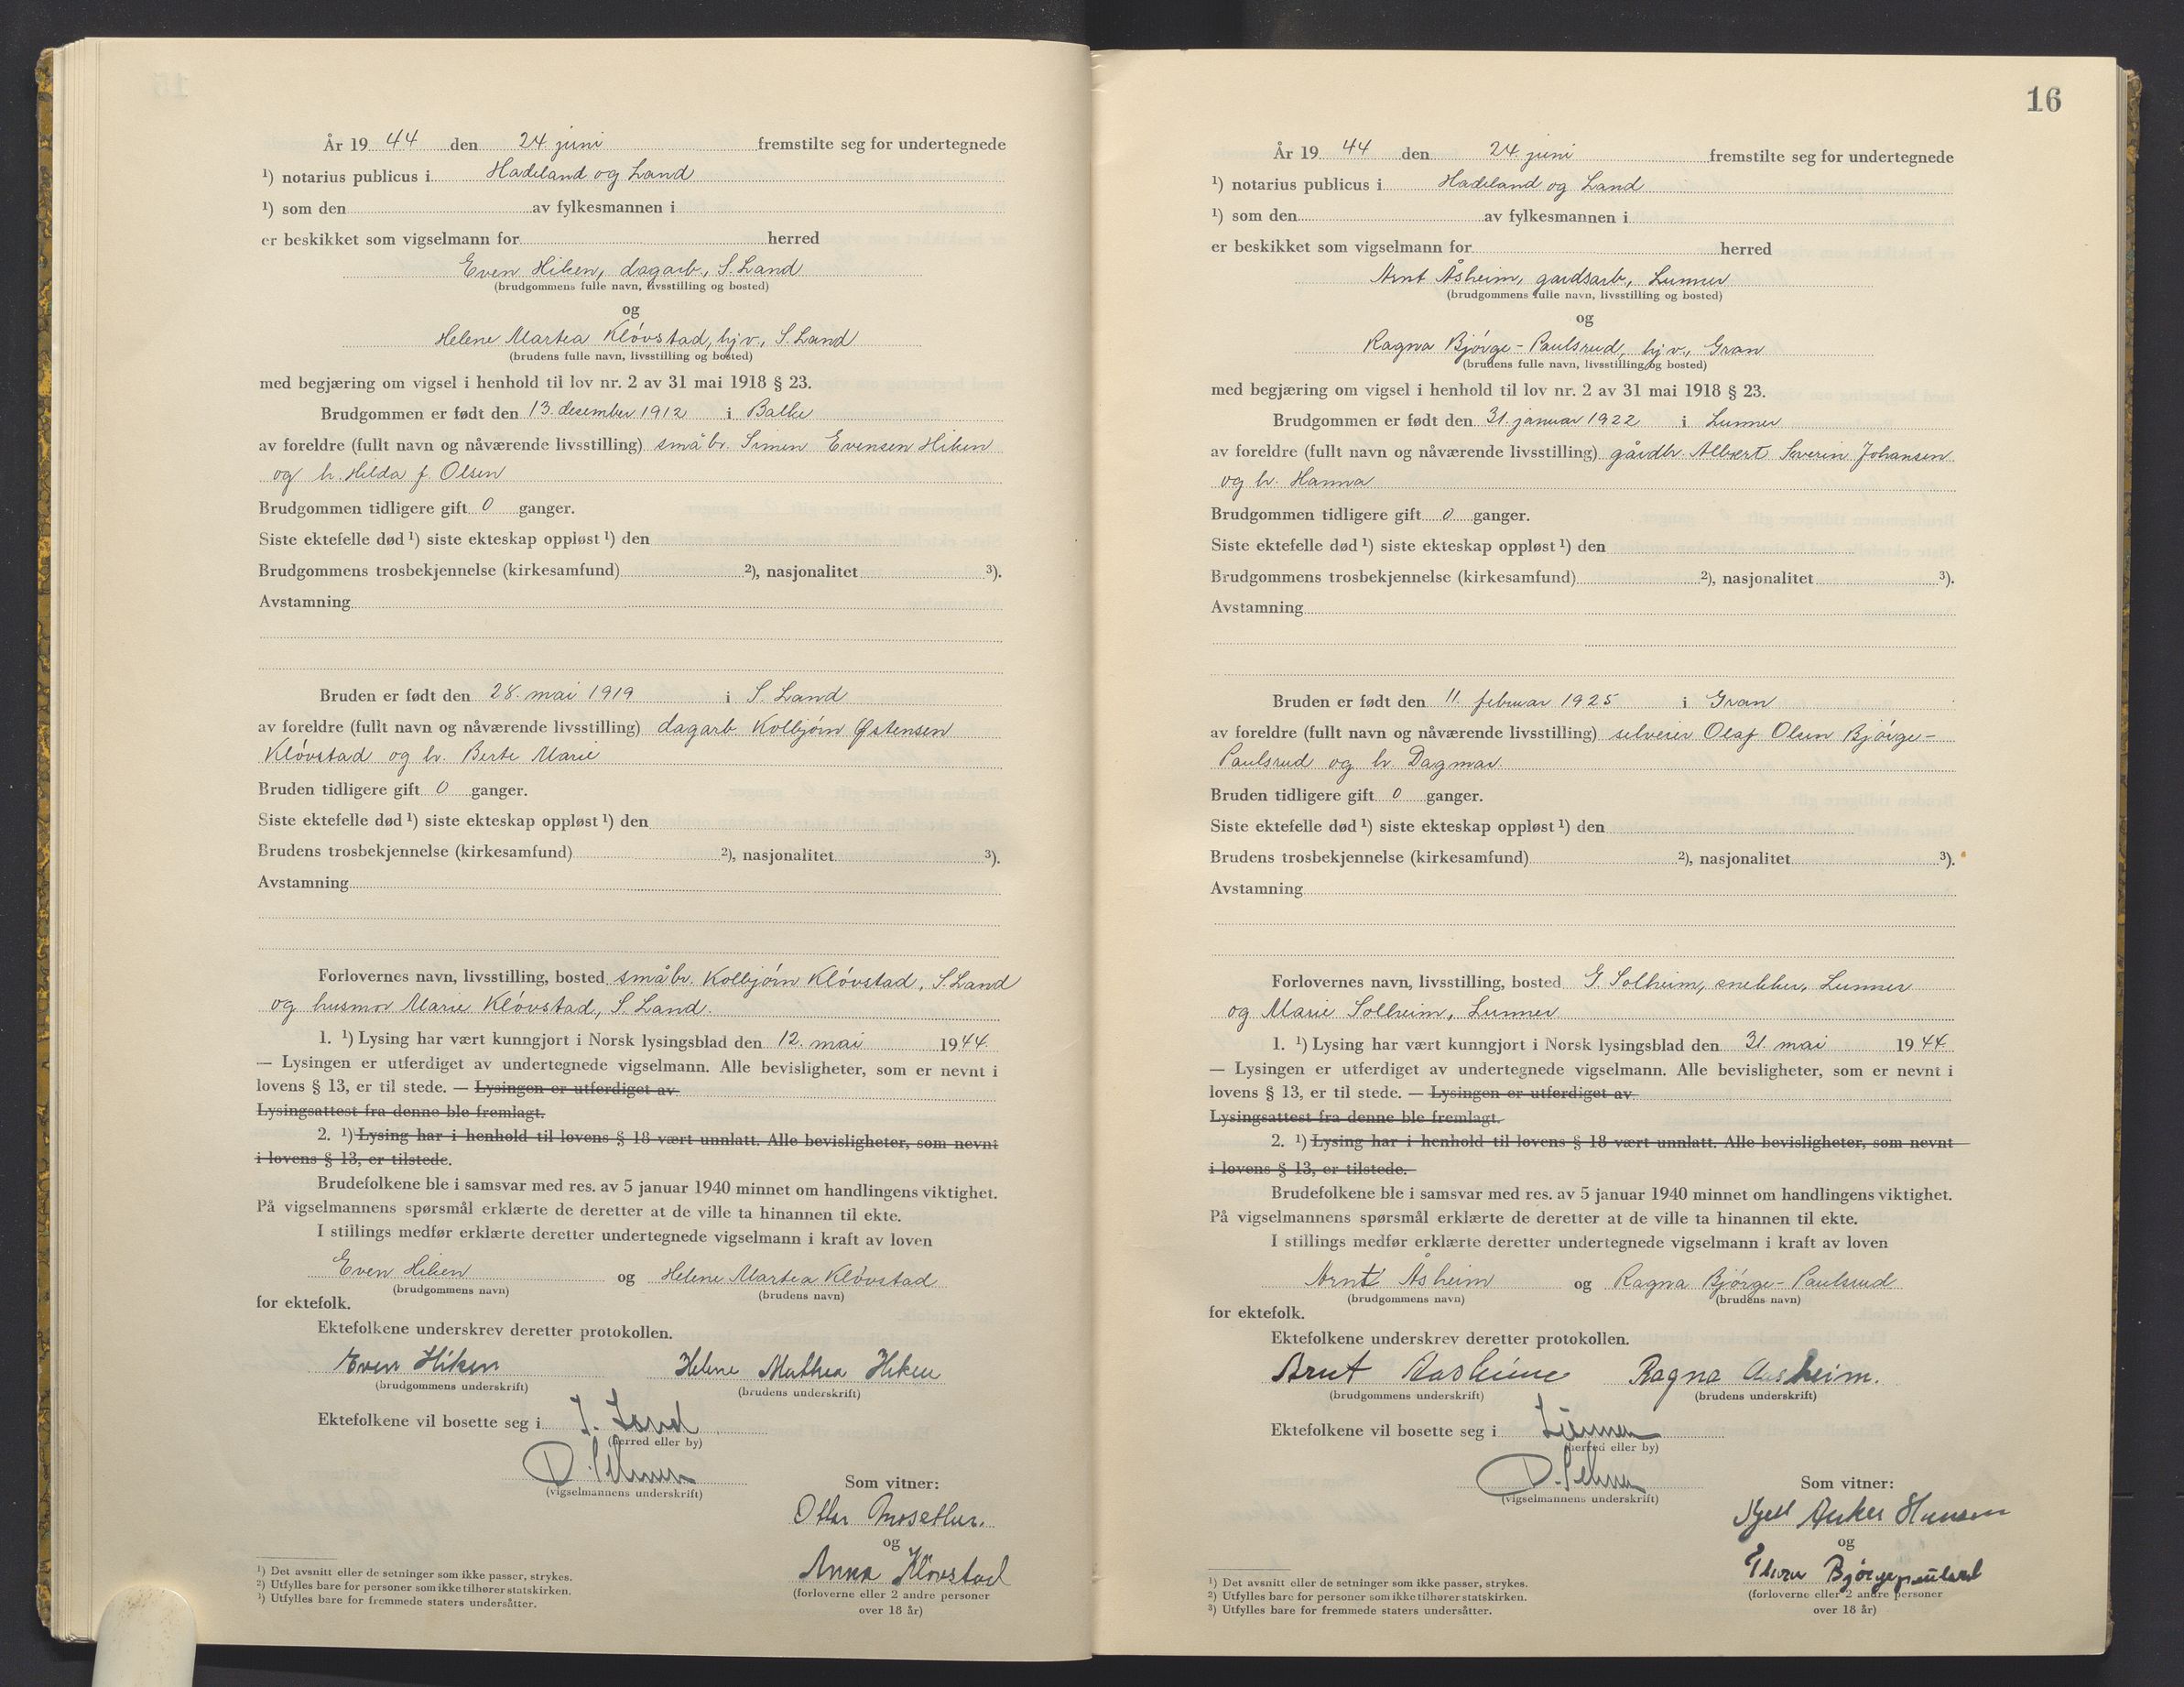 År 19 44 den 24 juni fremstilte seg for undertegnede
¹) notarius publicus i Hadeland og Land
¹) som den av fylkesmannen i
er beskikket som vigselmann for herred
Even Hiken, dagarb., S. Land
(brudgommens fulle navn, livsstilling og bosted)
og
Helene Martea Kløvstad, hjv., S. Land
(brudens fulle navn, livsstilling og bosted)
med begjæring om vigsel i henhold til lov nr. 2 av 31 mai 1918 § 23.
Brudgommen er født den 13. desember 1912 i Balke
av foreldre (fullt navn og nåværende livsstilling) småbr. Simen Evensen Hiken
og h. Hilda f. Olsen
Brudgommen tidligere gift 0 ganger.
Siste ektefelle død ¹) siste ekteskap oppløst ¹) den
Brudgommens trosbekjennelse (kirkesamfund) ²), nasjonalitet ³).
Avstamning
Bruden er født den 28. mai 1919 i S. Land
av foreldre (fullt navn og nåværende livsstilling) dagarb Kolbjørn Østensen
Kløvstad og h. Berte Marie
Bruden tidligere gift 0 ganger.
Siste ektefelle død ¹) siste ekteskap oppløst ¹) den
Brudens trosbekjennelse (kirkesamfund) ²), nasjonalitet ³).
Avstamning
Forlovernes navn, livsstilling, bosted småbr. Kolbjørn Kløvstad, S. Land
og husmor Marie Kløvstad, S. Land.
1. ¹) Lysing har vært kunngjort i Norsk lysingsblad den 12. mai 1944.
— Lysingen er utferdiget av undertegnede vigselmann. Alle bevisligheter, som er nevnt i
lovens § 13, er til stede. — Lysingen er utferdiget av
Lysingsattest fra denne ble fremlagt.
2. ¹) Lysing har i henhold til lovens § 18 vært unnlatt. Alle bevisligheter, som nevnt
i lovens § 13, er tilstede.
Brudefolkene ble i samsvar med res. av 5 januar 1940 minnet om handlingens viktighet.
På vigselmannens spørsmål erklærte de deretter at de ville ta hinannen til ekte.
I stillings medfør erklærte deretter undertegnede vigselmann i kraft av loven
Even Hiken og Helene Martea Kløvstad
(brudgommens navn) (brudens navn)
for ektefolk.
Ektefolkene underskrev deretter protokollen.
Even Hiken Helene Mathea Hiken
(brudgommens underskrift) (brudens underskrift)
Ektefolkene vil bosette seg i S. Land
(herred eller by)
(vigselmannens underskrift)
Som vitner:
Ottar
og
Anna Kløvstad
(forloverne eller 2 andre personer
over 18 år)
¹) Det avsnitt eller de setninger som ikke passer, strykes.
²) Utfylles bare for personer som ikke tilhører statskirken.
³) Utfylles bare for fremmede staters undersåtter.
16
År 19 44 den 24. juni fremstilte seg for undertegnede
¹) notarius publicus i Hadeland og Land
¹) som den av fylkesmannen i
er beskikket som vigselmann for herred
Arnt Åsheim, gardsarb., Lunner
(brudgommens fulle navn, livsstilling og bosted)
og
Ragna Bjørge-Paulsrud, hjv., Gran
(brudens fulle navn, livsstilling og bosted)
med begjæring om vigsel i henhold til lov nr. 2 av 31 mai 1918 § 23.
Brudgommen er født den 31. januar 1922 i Lunner
av foreldre (fullt navn og nåværende livsstilling) gårdbr. Albert Severin Johansen
og h. Hanna
Brudgommen tidligere gift 0 ganger.
Siste ektefelle død ¹) siste ekteskap oppløst ¹) den
Brudgommens trosbekjennelse (kirkesamfund) ²), nasjonalitet ³).
Avstamning
Bruden er født den 11. februar 1925 i Gran
av foreldre (fullt navn og nåværende livsstilling) selveier Olaf Olsen Bjørge-
Paulsrud og h. Dagmar.
Bruden tidligere gift 0 ganger.
Siste ektefelle død ¹) siste ekteskap oppløst ¹) den
Brudens trosbekjennelse (kirkesamfund) ²), nasjonalitet ³).
Avstamning
Forlovernes navn, livsstilling, bosted G. Solheim, snekker, Lunner
og Marie Solheim, Lunner
1. ¹) Lysing har vært kunngjort i Norsk lysingsblad den 31. mai 1944.
— Lysingen er utferdiget av undertegnede vigselmann. Alle bevisligheter, som er nevnt i
lovens § 13, er til stede. — Lysingen er utferdiget av
Lysingsattest fra denne ble fremlagt.
2. ¹) Lysing har i henhold til lovens § 18 vært unnlatt. Alle bevisligheter, som nevnt
i lovens § 13, er tilstede.
Brudefolkene ble i samsvar med res. av 5 januar 1940 minnet om handlingens viktighet.
På vigselmannens spørsmål erklærte de deretter at de ville ta hinannen til ekte.
I stillings medfør erklærte deretter undertegnede vigselmann i kraft av loven
Arnt Åsheim og Ragna Bjørge-Paulsrud
(brudgommens navn) (brudens navn)
for ektefolk.
Ektefolkene underskrev deretter protokollen.
Arnt Aasheim Ragna Aasheim.
(brudgommens underskrift) (brudens underskrift)
Ektefolkene vil bosette seg i Lunner
(herred eller by)
(vigselmannens underskrift)
Som vitner:
Kjell Anker Hansen
og
Thora Bjørgepaulsrud
(forloverne eller 2 andre personer
over 18 år)
¹) Det avsnitt eller de setninger som ikke passer, strykes.
²) Utfylles bare for personer som ikke tilhører statskirken.
³) Utfylles bare for fremmede staters undersåtter.